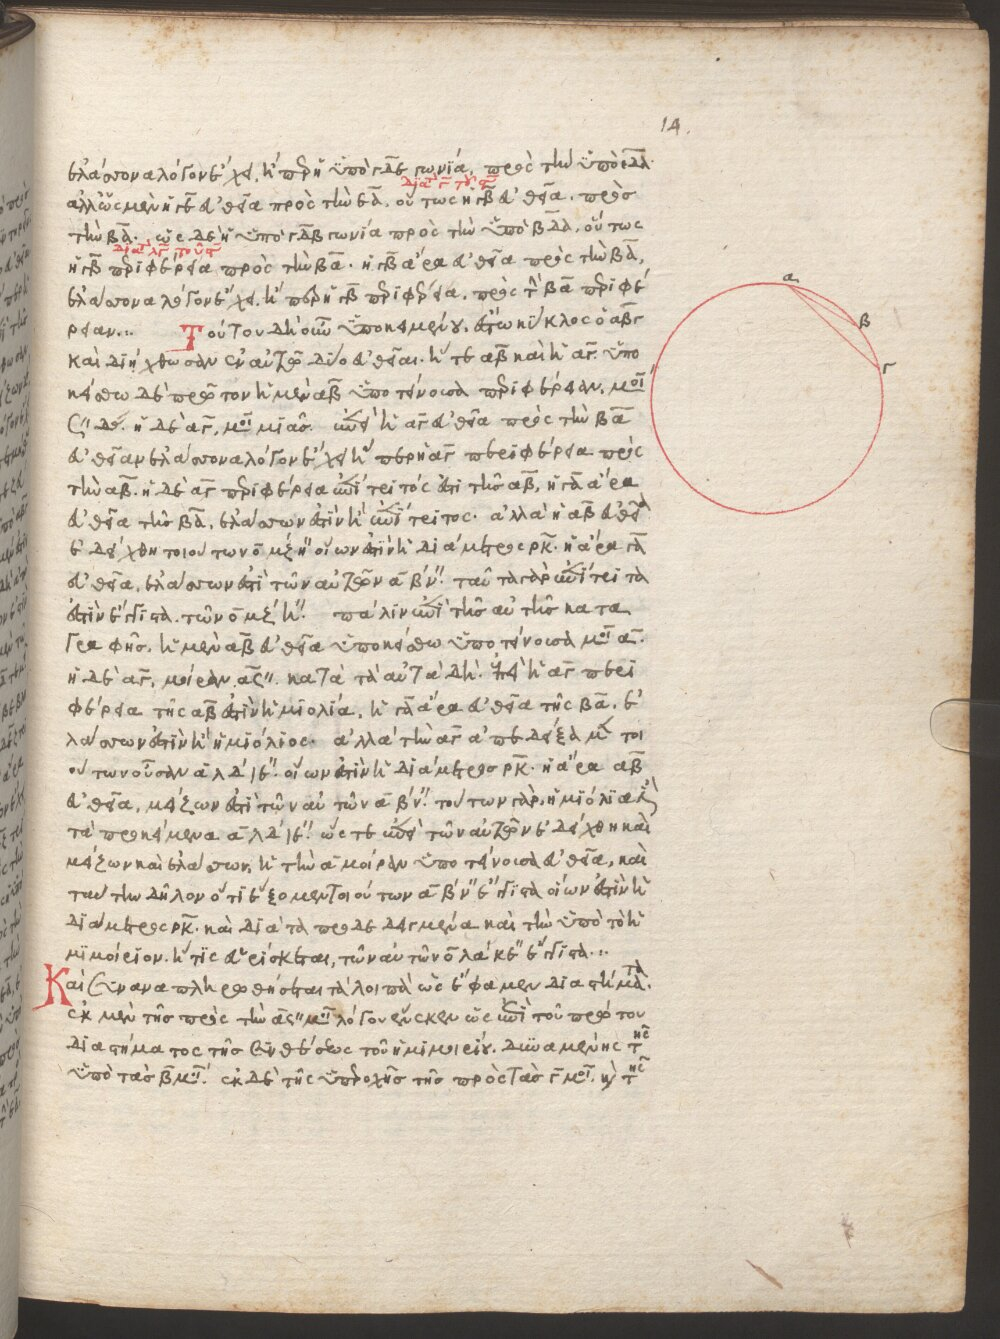 ἐλάσσονα λόγον ἔχει, ἤπερ ἡ ὑπὸ γδε γωνία, πρὸς τὴν ὑπὸ εδα.
διὰ τὸ γ̅ τοῦ ς̅
ἀλλ' ὡς μὲν ἡ γε εὐθεῖα πρὸς τὴν εα, οὕτως ἡ γβ εὐθεῖα πρὸς
τὴν βα. ὡς δὲ ἡ ὑπὸ γδβ γωνία πρὸς τὴν ὑπὸ βδα, οὕτως
διὰ τὸ λγ̅ τοῦ ς̅
ἡ γβ περιφέρεια πρὸς τὴν βα. ἡ γβ ἄρα εὐθεῖα πρὸς τὴν βα,
ἐλάσσονα λόγον ἔχει, ἤπερ ἡ γβ περιφέρεια, πρὸς τὴν βα περιφέ
ρειαν. Τούτου δὴ οὖν ὑποκειμένου, ἔστω κύκλος ὁ αβγ
καὶ διήχθωσαν ἐν αὐτῷ δύο εὐθεῖαι. ἥ τε αβ καὶ ἡ αγ. ὑπο
κείσθω δὲ πρῶτον ἡ μὲν αβ ὑποτείνουσα περιφέρειαν, μοι
ς'' δ''. ἡ δὲ αγ, μοι μιᾶς. ἐπεὶ ἡ αγ εὐθεῖα πρὸς τὴν βα
εὐθεῖαν ἐλάσσονα λόγον ἔχει ἤπερ ἡ αγ περιφέρεια πρὸς
τὴν αβ. ἡ δὲ αγ περιφέρεια ἐπίτριτός ἐστι τῆς αβ, ἡ γα ἄρα
εὐθεῖα τῆς βα, ἐλάσσων ἐστὶν ἢ ἐπίτριτος. ἀλλὰ ἡ αβ εὐθεῖα
ἐδείχθη τοιούτων ο̅ μζ η'' οἵων ἐστὶν ἡ διάμετρος ρκ. ἡ ἄρα γα
εὐθεῖα, ἐλάσσων ἐστὶ τῶν αὐτῶν α̅ β' ν''. ταῦτα γὰρ ἐπίτριτά
ἐστιν ἔγγιστα. τῶν ο̅ μζ' η''. πάλιν ἐπὶ τῆς αὐτῆς κατα
γραφῆς, ἡ μὲν αβ εὐθεῖα ὑποκείσθω ὑποτείνουσα μοι α̅.
ἡ δὲ αγ, μοῖραν α̅ς''. κατὰ τὰ αὐτὰ δὴ. ἐπεὶ ἡ αγ περι
φέρεια τῆς αβ ἐστὶν ἡμιολία, ἡ γα ἄρα εὐθεῖα τῆς βα, ἐ
λάσσων ἐστὶν ἢ ἡμιόλιος. ἀλλὰ τὴν αγ ἀπεδείξαμεν τοι
ούτων οὖσαν α̅ λδ' ιε''. οἵων ἐστὶν ἡ διάμετρος ρκ. ἡ ἄρα αβ
εὐθεῖα, μείζων ἐστὶ τῶν αὐτῶν α̅ β' ν''. τούτων γὰρ, ἡμιόλιά ἐστι
τὰ προκείμενα α̅ λδ' ιε''. ὥστε ἐπεὶ τῶν αὐτῶν ἐδείχθη καὶ
μείζων καὶ ἐλάσσων, ἡ τὴν α̅ μοῖραν ὑποτείνουσα εὐθεῖα, καὶ
ταύτην δῆλον ὅτι ἕξομεν τοιούτων α̅ β' ν'' ἔγγιστα οἵων ἐστὶν ἡ
διάμετρος ρκ. καὶ διὰ τὰ προδεδειγμένα καὶ τὴν ὑπὸ τὸ ἡ
μιμοίριον. ἥτις εὑρίσκεται, τῶν αὐτῶν ο̅ λα' κε'' ἔγγιστα...
Καὶ συναναπληρωθήσεται τὰ λοιπὰ ὡς ἔφαμεν διαστήματα.
ἐκ μὲν τῆς πρὸς τὴν α̅ς'' μοι λόγου ἕνεκεν ὡς ἐπὶ τοῦ πρώτου
διαστήματος τῆς συνθέσεως τοῦ ἡμιμοιρίου. δεικνυμένης τῆς
ὑπὸ τὰς β̅ μοι. ἐκ δὲ τῆς ὑπεροχῆς τῆς πρὸς τὰς γ̅ μοι. καὶ τῆς
14.
α
β
γ